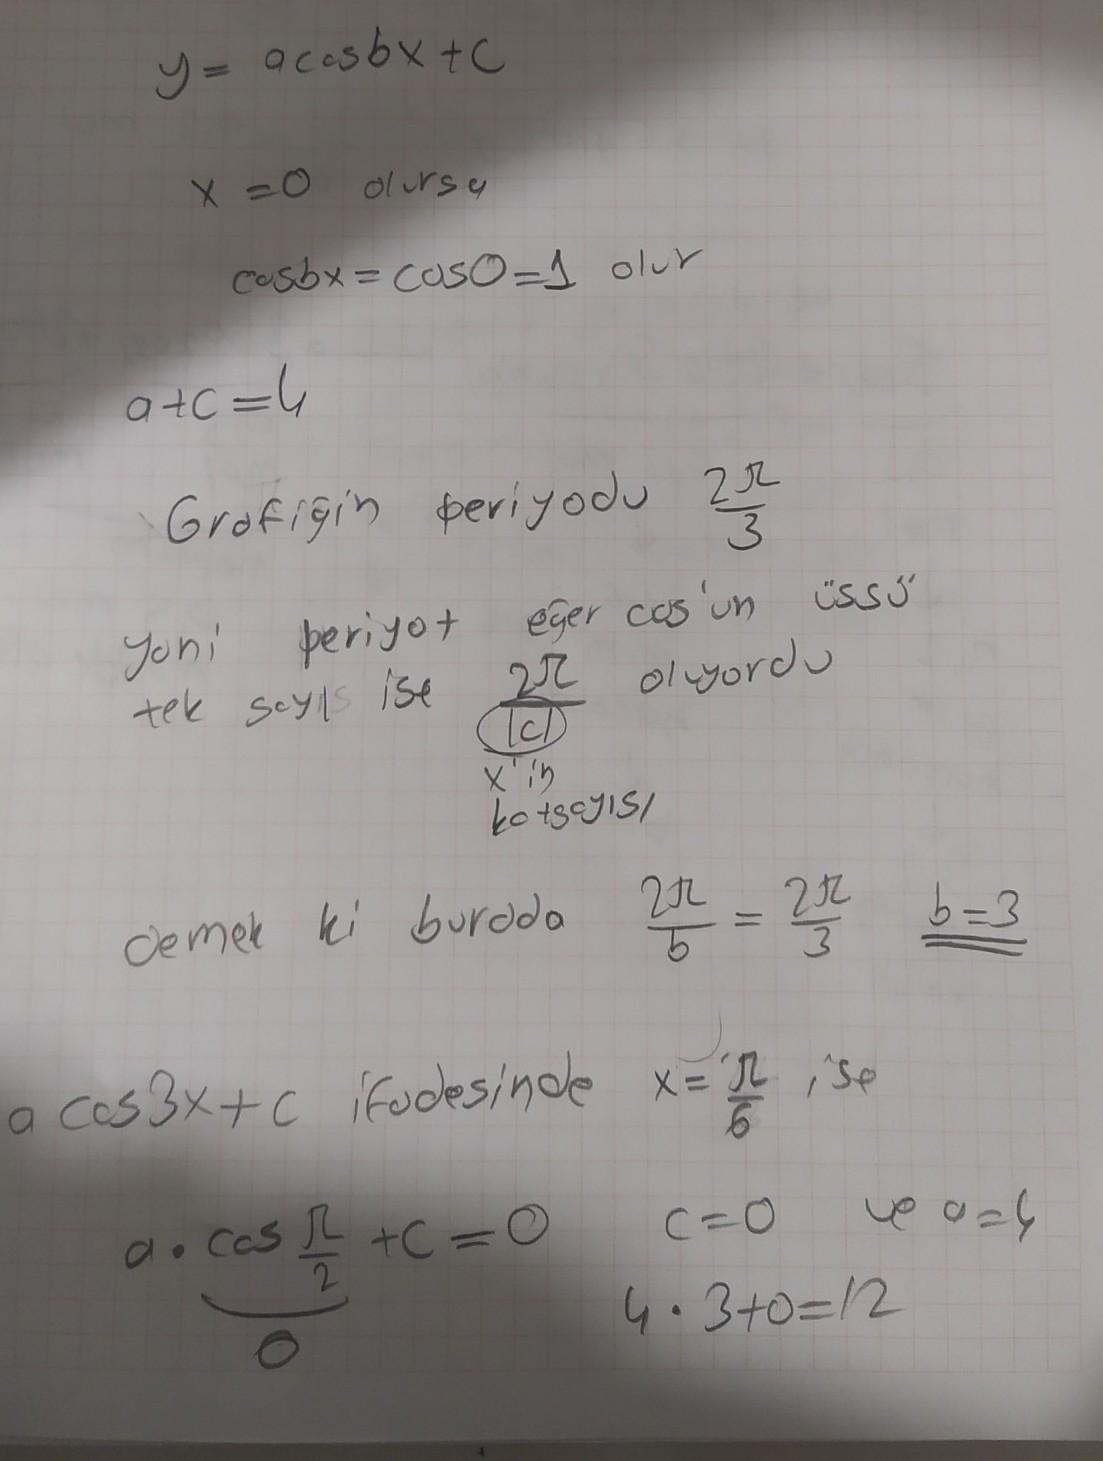 y = acosbx+c
x = 0 olursa
cosbx = cos0 = 1 olur
a+c = 4
Grafiğin periyodu 2π/3
yani periyot eğer cos'un üssü
tek sayıs ise 2π/|c| oluyordu
x'in
katsayısı
demek ki burada 2π/b = 2π/3 b=3
a cos3x+c ifadesinde x = π/6 ise
a . cos π/2 + c = 0 c = 0 ve a = 4
0
4 . 3+0=12